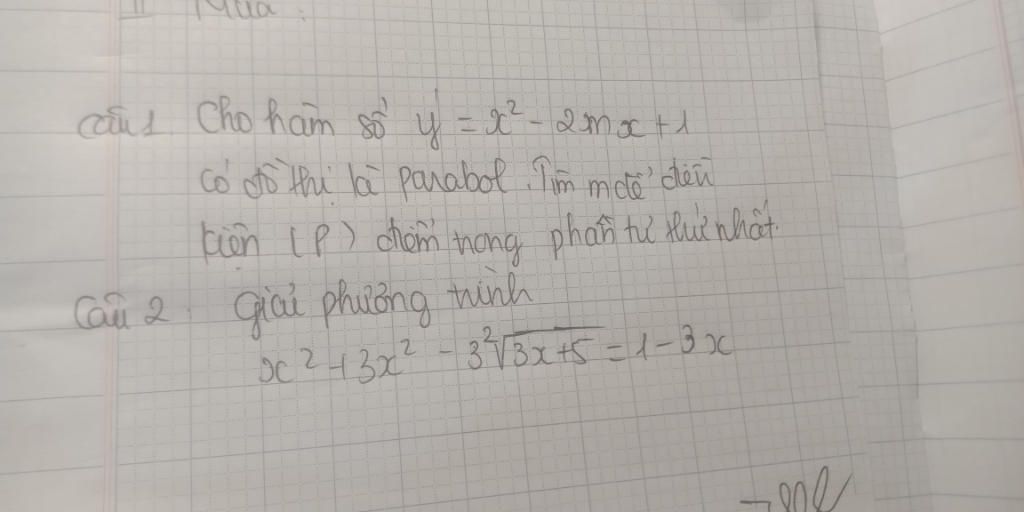 II Mua:
Câu 1 Cho hàm số y = x² - 2mx + 1
có đồ thị là parabol. Tìm m để điều
kiện (P) điểm trong phần tư thứ nhất.
Câu 2. giải phương trình
x² + 3x² - 3²√3x+5 = 1 - 3x